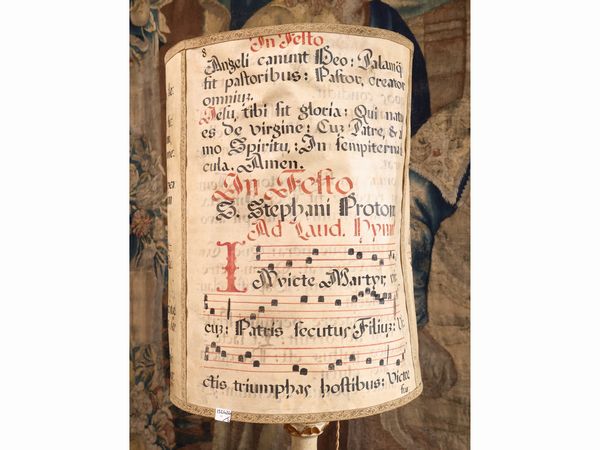 8
In Festo
Angeli canunt Deo: Palamq̃
fit pastoribus: Pastor, creator
omniuz.
Jesu, tibi sit gloria: Qui natu
es de virgine: Cuz Patre, & a
mo Spiritu,: In sempiterna
cula. Amen.
In Festo
S. Stephani Protom
Ad Laud. Hymn
INvicte Martyr,
cuz: Patris secutus Filiuz:
ctis triumphas hostibus: Victor